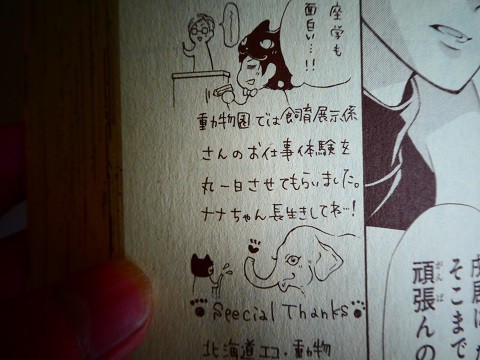 座学も
面白い…!!
動物園では飼育展示係
さんのお仕事体験を
丸一日させてもらいました。
ナナちゃん長生きしてね…!
Special Thanks
北海道エコ・動物
そこまで
頑張んの
がんば